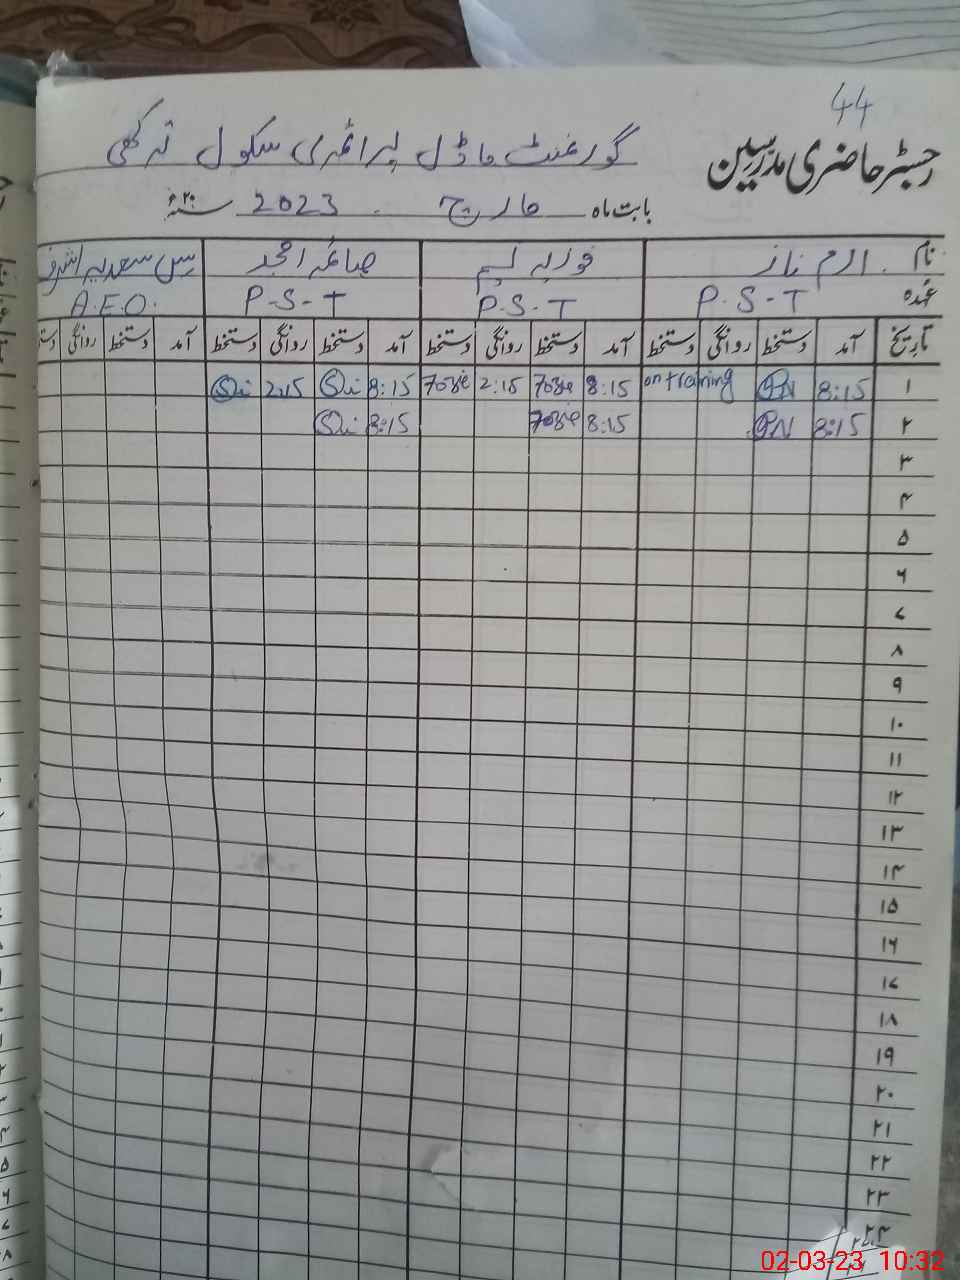 44
رجسٹر حاضری مدرسین گورنمنٹ ماڈل پرائمری سکول
بابت ماہ مارچ 2023 سنہ ۲۰ء
نام ارم ناز فوزیہ نسیم صائمہ امجد مس سعدیہ اشرف
عہدہ P.S.T P.S.T P-S-T A.E.O.
تاریخ آمد دستخط روانگی دستخط آمد دستخط روانگی دستخط آمد دستخط روانگی دستخط آمد دستخط روانگی
۱ 8:15 on training 8:15 2:15 8:15 2:15
۲ 8:15 8:15 8:15
۳
۴
۵
۶
۷
۸
۹
۱۰
۱۱
۱۲
۱۳
۱۴
۱۵
۱۶
۱۷
۱۸
۱۹
۲۰
۲۱
۲۲
۲۳
02-03-23 10:32